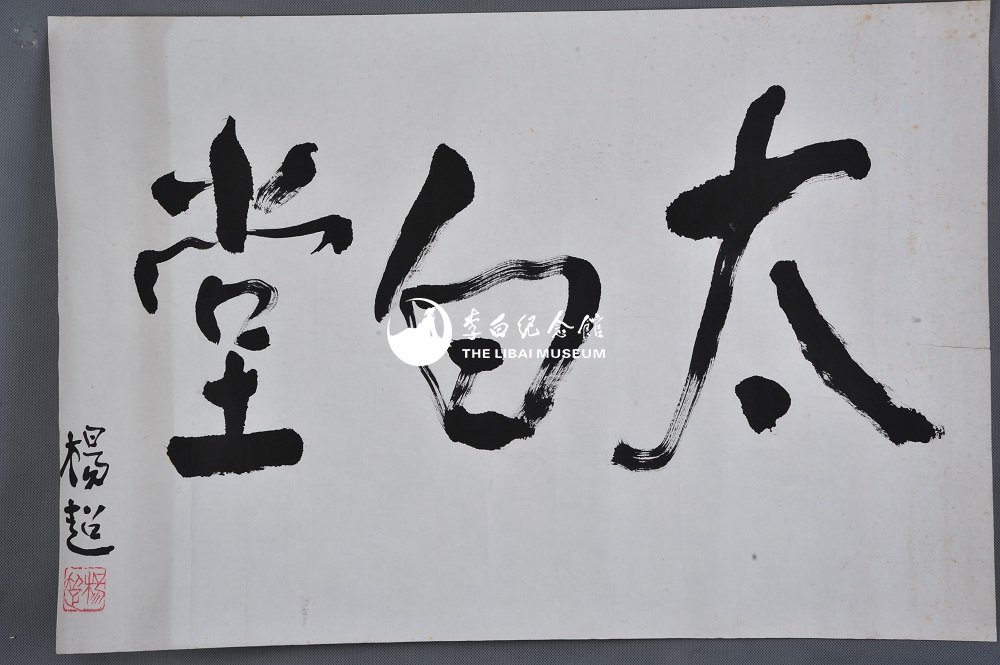 太白堂
楊超
楊超
李白纪念馆
THE LIBAI MUSEUM